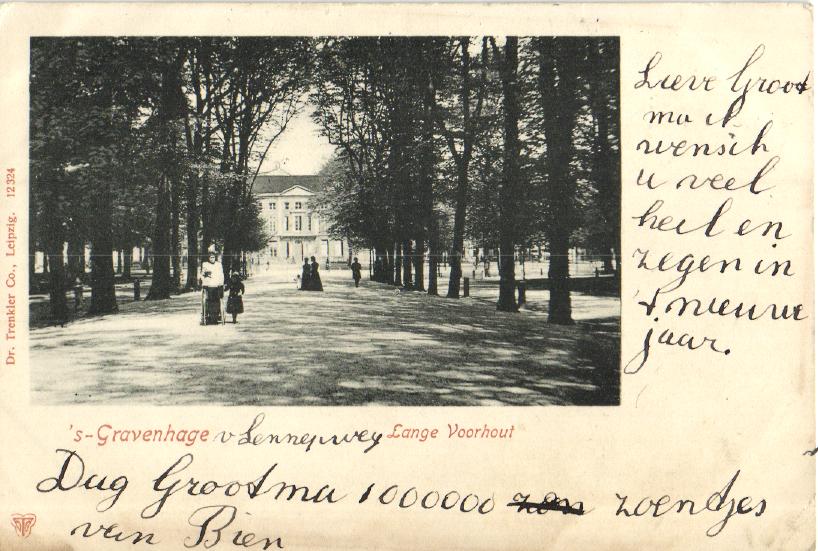 Lieve Groot
ma ik
wensch
u veel
heil en
zegen in
't nieuwe
jaar.
Dr. Trenkler Co., Leipzig. 12324
's-Gravenhage v Lennepweg Lange Voorhout
Dag Grootma 1000000 zoentjes
van Bien